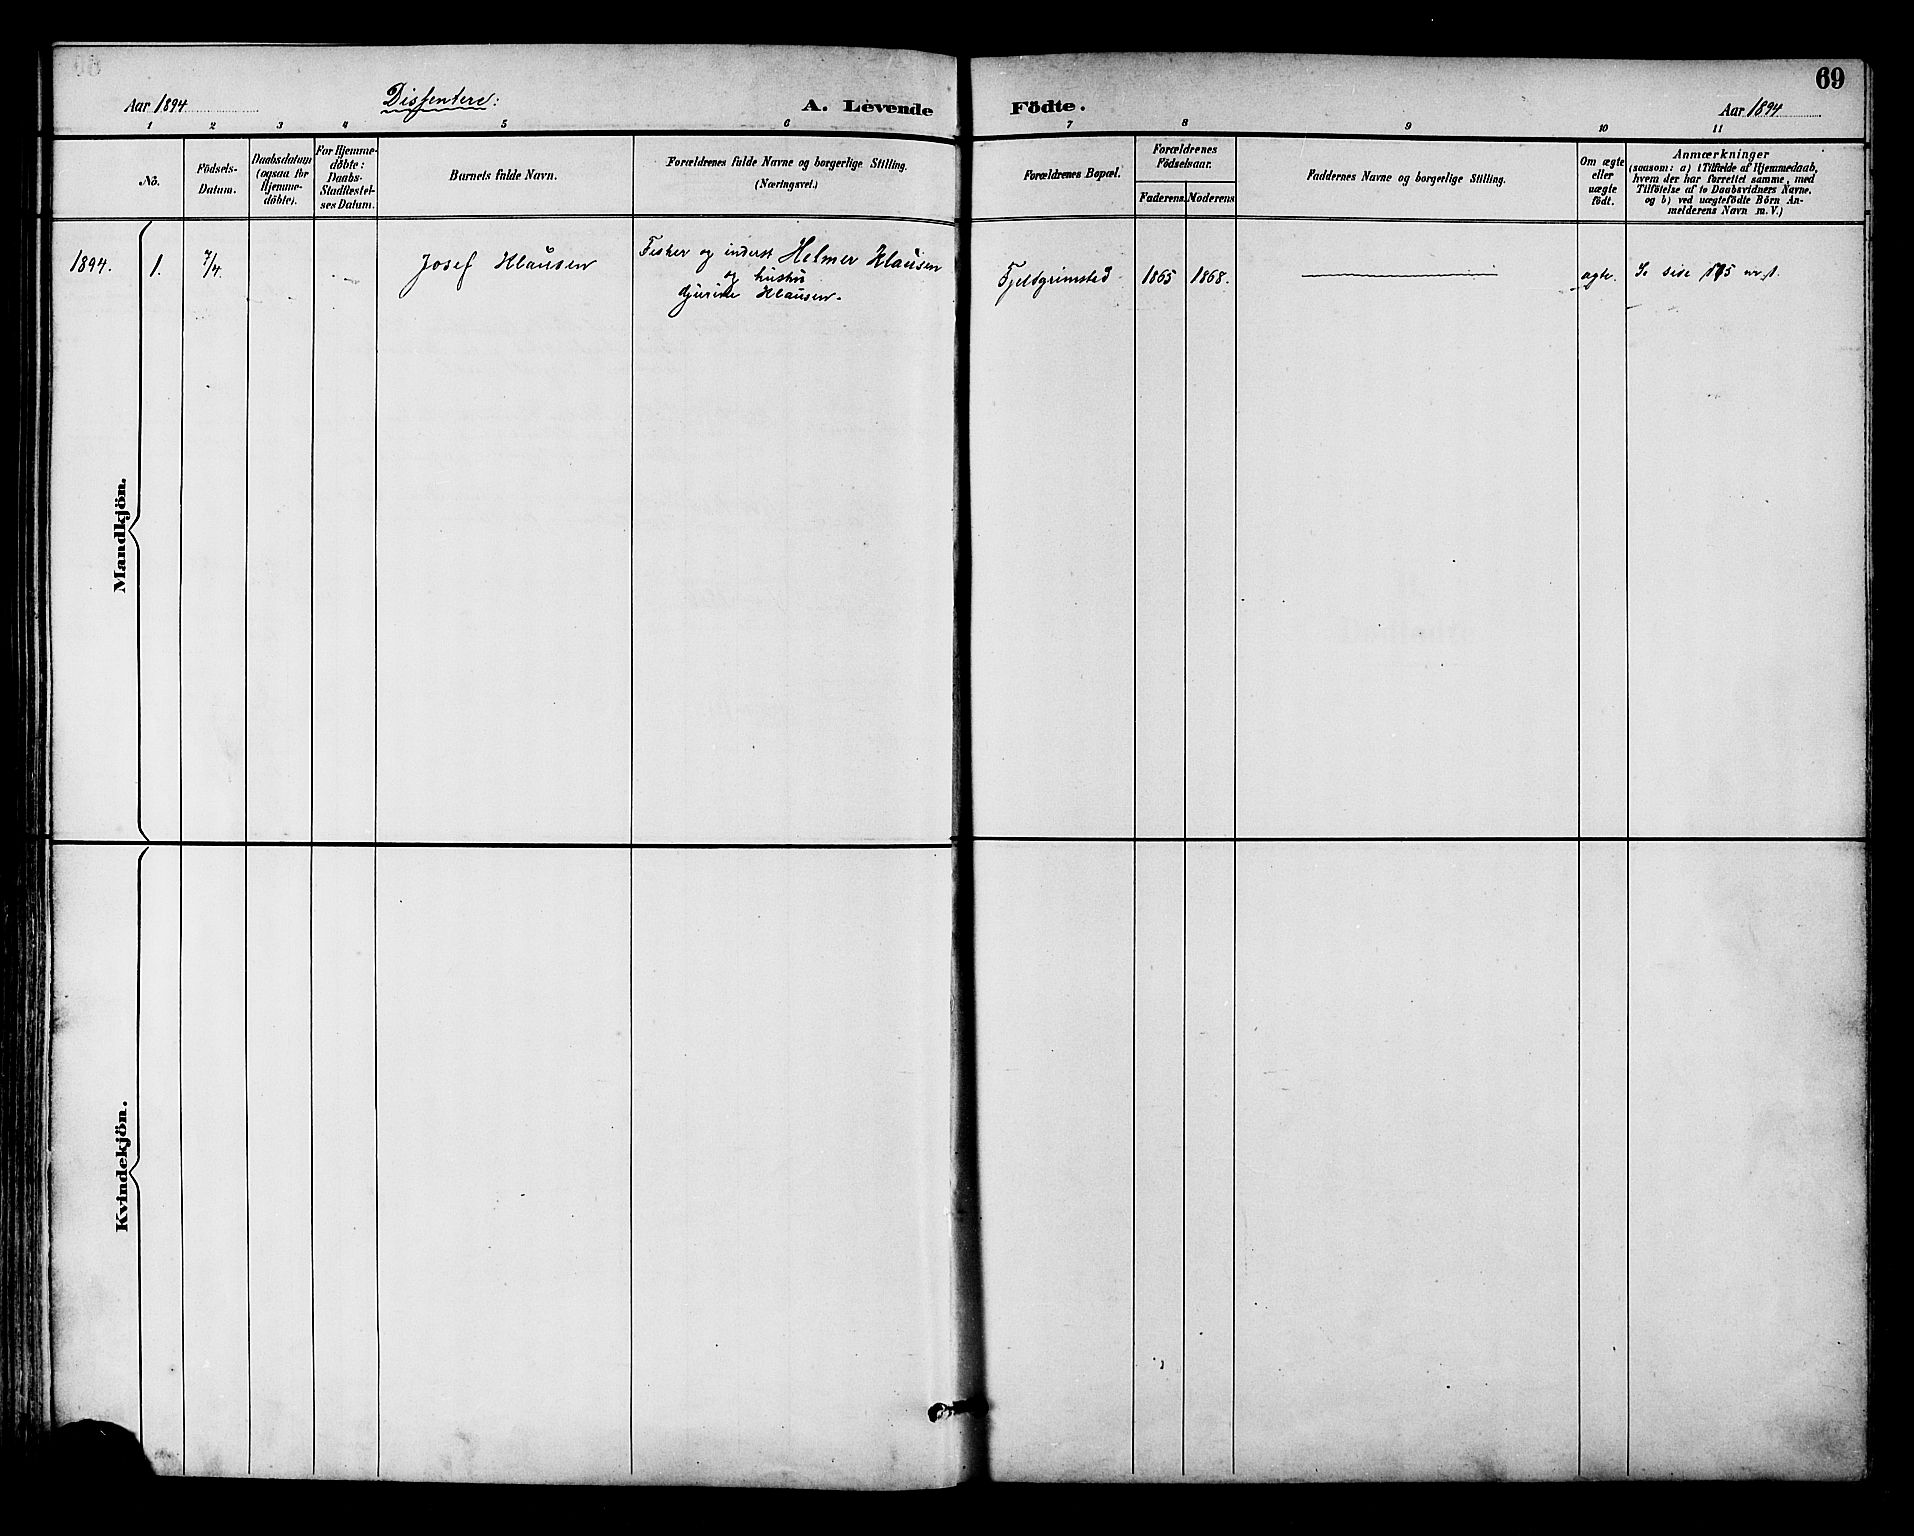 69
Aar 1894
Dissentere:
A. Levende
Födte.
Aar 1894
1 2 3 4 5 6 7 8 9 10 11
No.
Födsels-
Datum.
Daabsdatum
(ogsaa for
Hjemme-
döbte).
For Hjemme-
döbte:
Daabs-
Stadfæstel-
ses Datum.
Barnets fulde Navn.
Forældrenes fulde Navne og borgerlige Stilling.
(Næringsvei.)
Forældrenes Bopæl.
Forældrenes
Födselsaar.
Faderens.
Moderens
Faddernes Navne og borgerlige Stilling.
Om ægte
eller
uægte
födt.
Anmærkninger
(saasom: a) i Tilfælde af Hjemmedaab,
hvem der har forrettet samme, med
Tilföielse af to Daabsvidners Navne,
og b) ved uægtefödte Börn An-
melderens Navn m. V.)
1894.
1.
7/4.
Josef Klausen
Fisker og inderst Helmer Klausen
og hustru
Klausen.
Fjeldgrimstad
1865
1868.
ægte.
Se side 175 nr 1.
Mandkjön.
Kvindekjön.